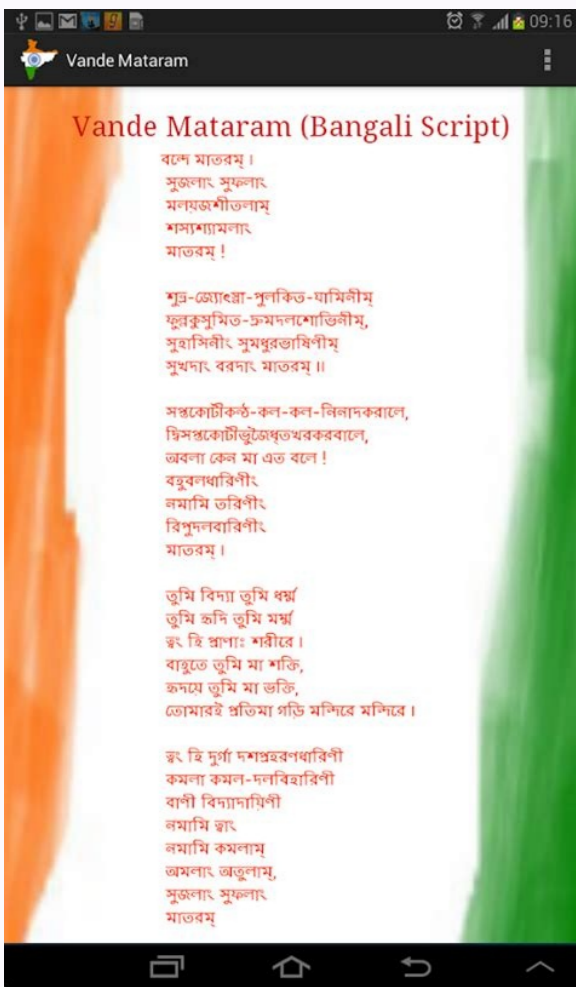 09:16
Vande Mataram
Vande Mataram (Bangali Script)
বন্দে মাতরম্ ।
সুজলাং সুফলাং
মলয়জশীতলাম্
শস্যশ্যামলাং
মাতরম্ !
শুভ্র-জ্যোৎস্না-পুলকিত-যামিনীম্
ফুল্লকুসুমিত-দ্রুমদলশোভিনীম্,
সুহাসিনীং সুমধুরভাষিণীম্
সুখদাং বরদাং মাতরম্ ॥
সপ্তকোটীকন্ঠ-কল-কল-নিনাদকরালে,
দ্বিসপ্তকোটীভুজৈধৃতখরকরবালে,
অবলা কেন মা এত বলে !
বহুবলধারিণীং
নমামি তরিণীং
রিপুদলবারিণীং
মাতরম্ ।
তুমি বিদ্যা তুমি ধর্ম্ম
তুমি হৃদি তুমি মর্ম্ম
ত্বং হি প্রাণাঃ শরীরে ।
বাহুতে তুমি মা শক্তি,
হৃদয়ে তুমি মা ভক্তি,
তোমারই প্রতিমা গড়ি মন্দিরে মন্দিরে ।
ত্বং হি দুর্গা দশপ্রহরণধারিণী
কমলা কমল-দলবিহারিণী
বাণী বিদ্যাদায়িণী
নমামি ত্বাং
নমামি কমলাম্
অমলাং অতুলাম্,
সুজলাং সুফলাং
মাতরম্